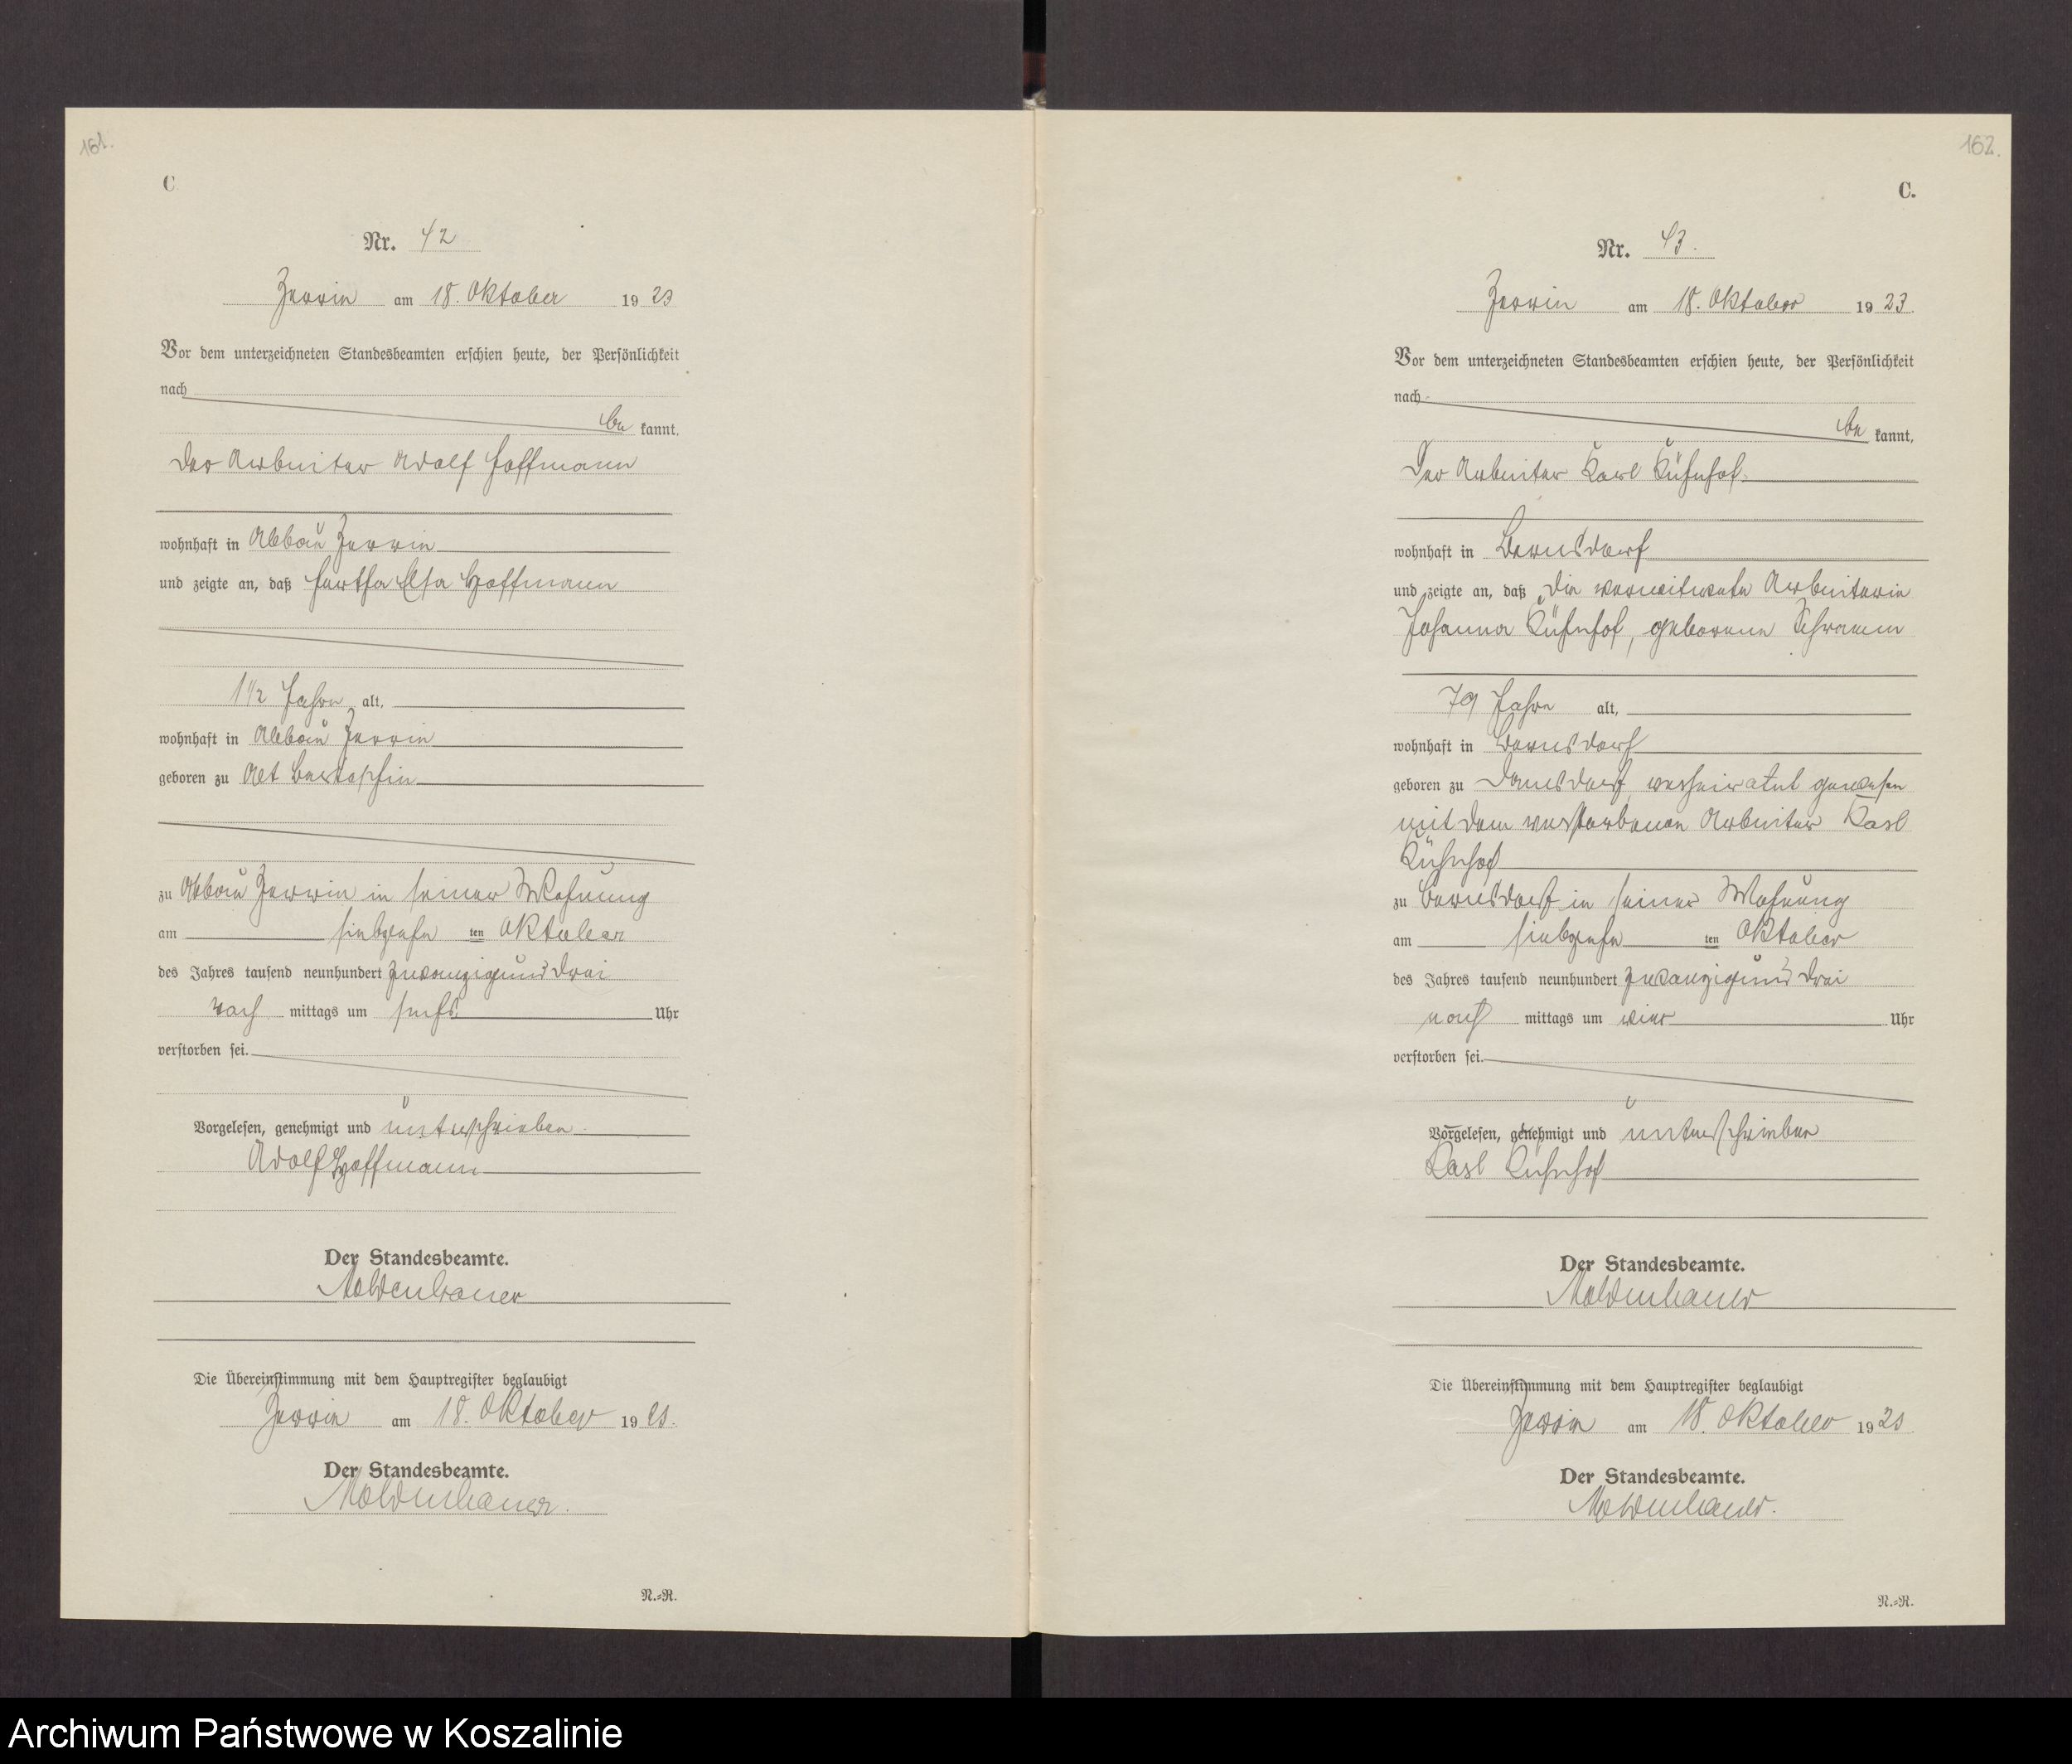 161.
C
Nr. 42
Zerrin am 18. Oktober 1923
Vor dem unterzeichneten Standesbeamten erschien heute, der Persönlichkeit
nach
be kannt,
der Arbeiter Adolf Hoffmann
wohnhaft in Abbau Zerrin
und zeigte an, daß Hertha Elsa Hoffmann
1 1/2 Jahre alt,
wohnhaft in Abbau Zerrin
geboren zu Alt
zu Abbau Zerrin in seiner Wohnung
am siebzehn ten Oktober
des Jahres tausend neunhundert zwanzigund drei
nach mittags um sechs Uhr
verstorben sei.
Vorgelesen, genehmigt und unterschrieben
Adolf Hoffmann
Der Standesbeamte.
Moldenhauer
Die Übereinstimmung mit dem Hauptregister beglaubigt
Zerrin am 18. Oktober 1923.
Der Standesbeamte.
Moldenhauer.
N.=R.
162.
C.
Nr. 43.
Zerrin am 18. Oktober 1923.
Vor dem unterzeichneten Standesbeamten erschien heute, der Persönlichkeit
nach
be kannt,
Der Arbeiter Karl Kühnhof
wohnhaft in Bernsdorf
und zeigte an, daß die verwitwete Arbeiterin
Johanna Kühnhof, geborene Schramm
79 Jahre alt,
wohnhaft in Bernsdorf
geboren zu Damsdorf, verheiratet gewesen
mit dem verstorbenen Arbeiter Karl
Kühnhof
zu Bernsdorf in seiner Wohnung
am siebzehn ten Oktober
des Jahres tausend neunhundert zwanzigund drei
nach mittags um vier Uhr
verstorben sei.
Vorgelesen, genehmigt und unterschrieben
Karl Kühnhof
Der Standesbeamte.
Moldenhauer
Die Übereinstimmung mit dem Hauptregister beglaubigt
Zerrin am 18. Oktober 1923
Der Standesbeamte.
Moldenhauer.
N.=R.
Archiwum Państwowe w Koszalinie